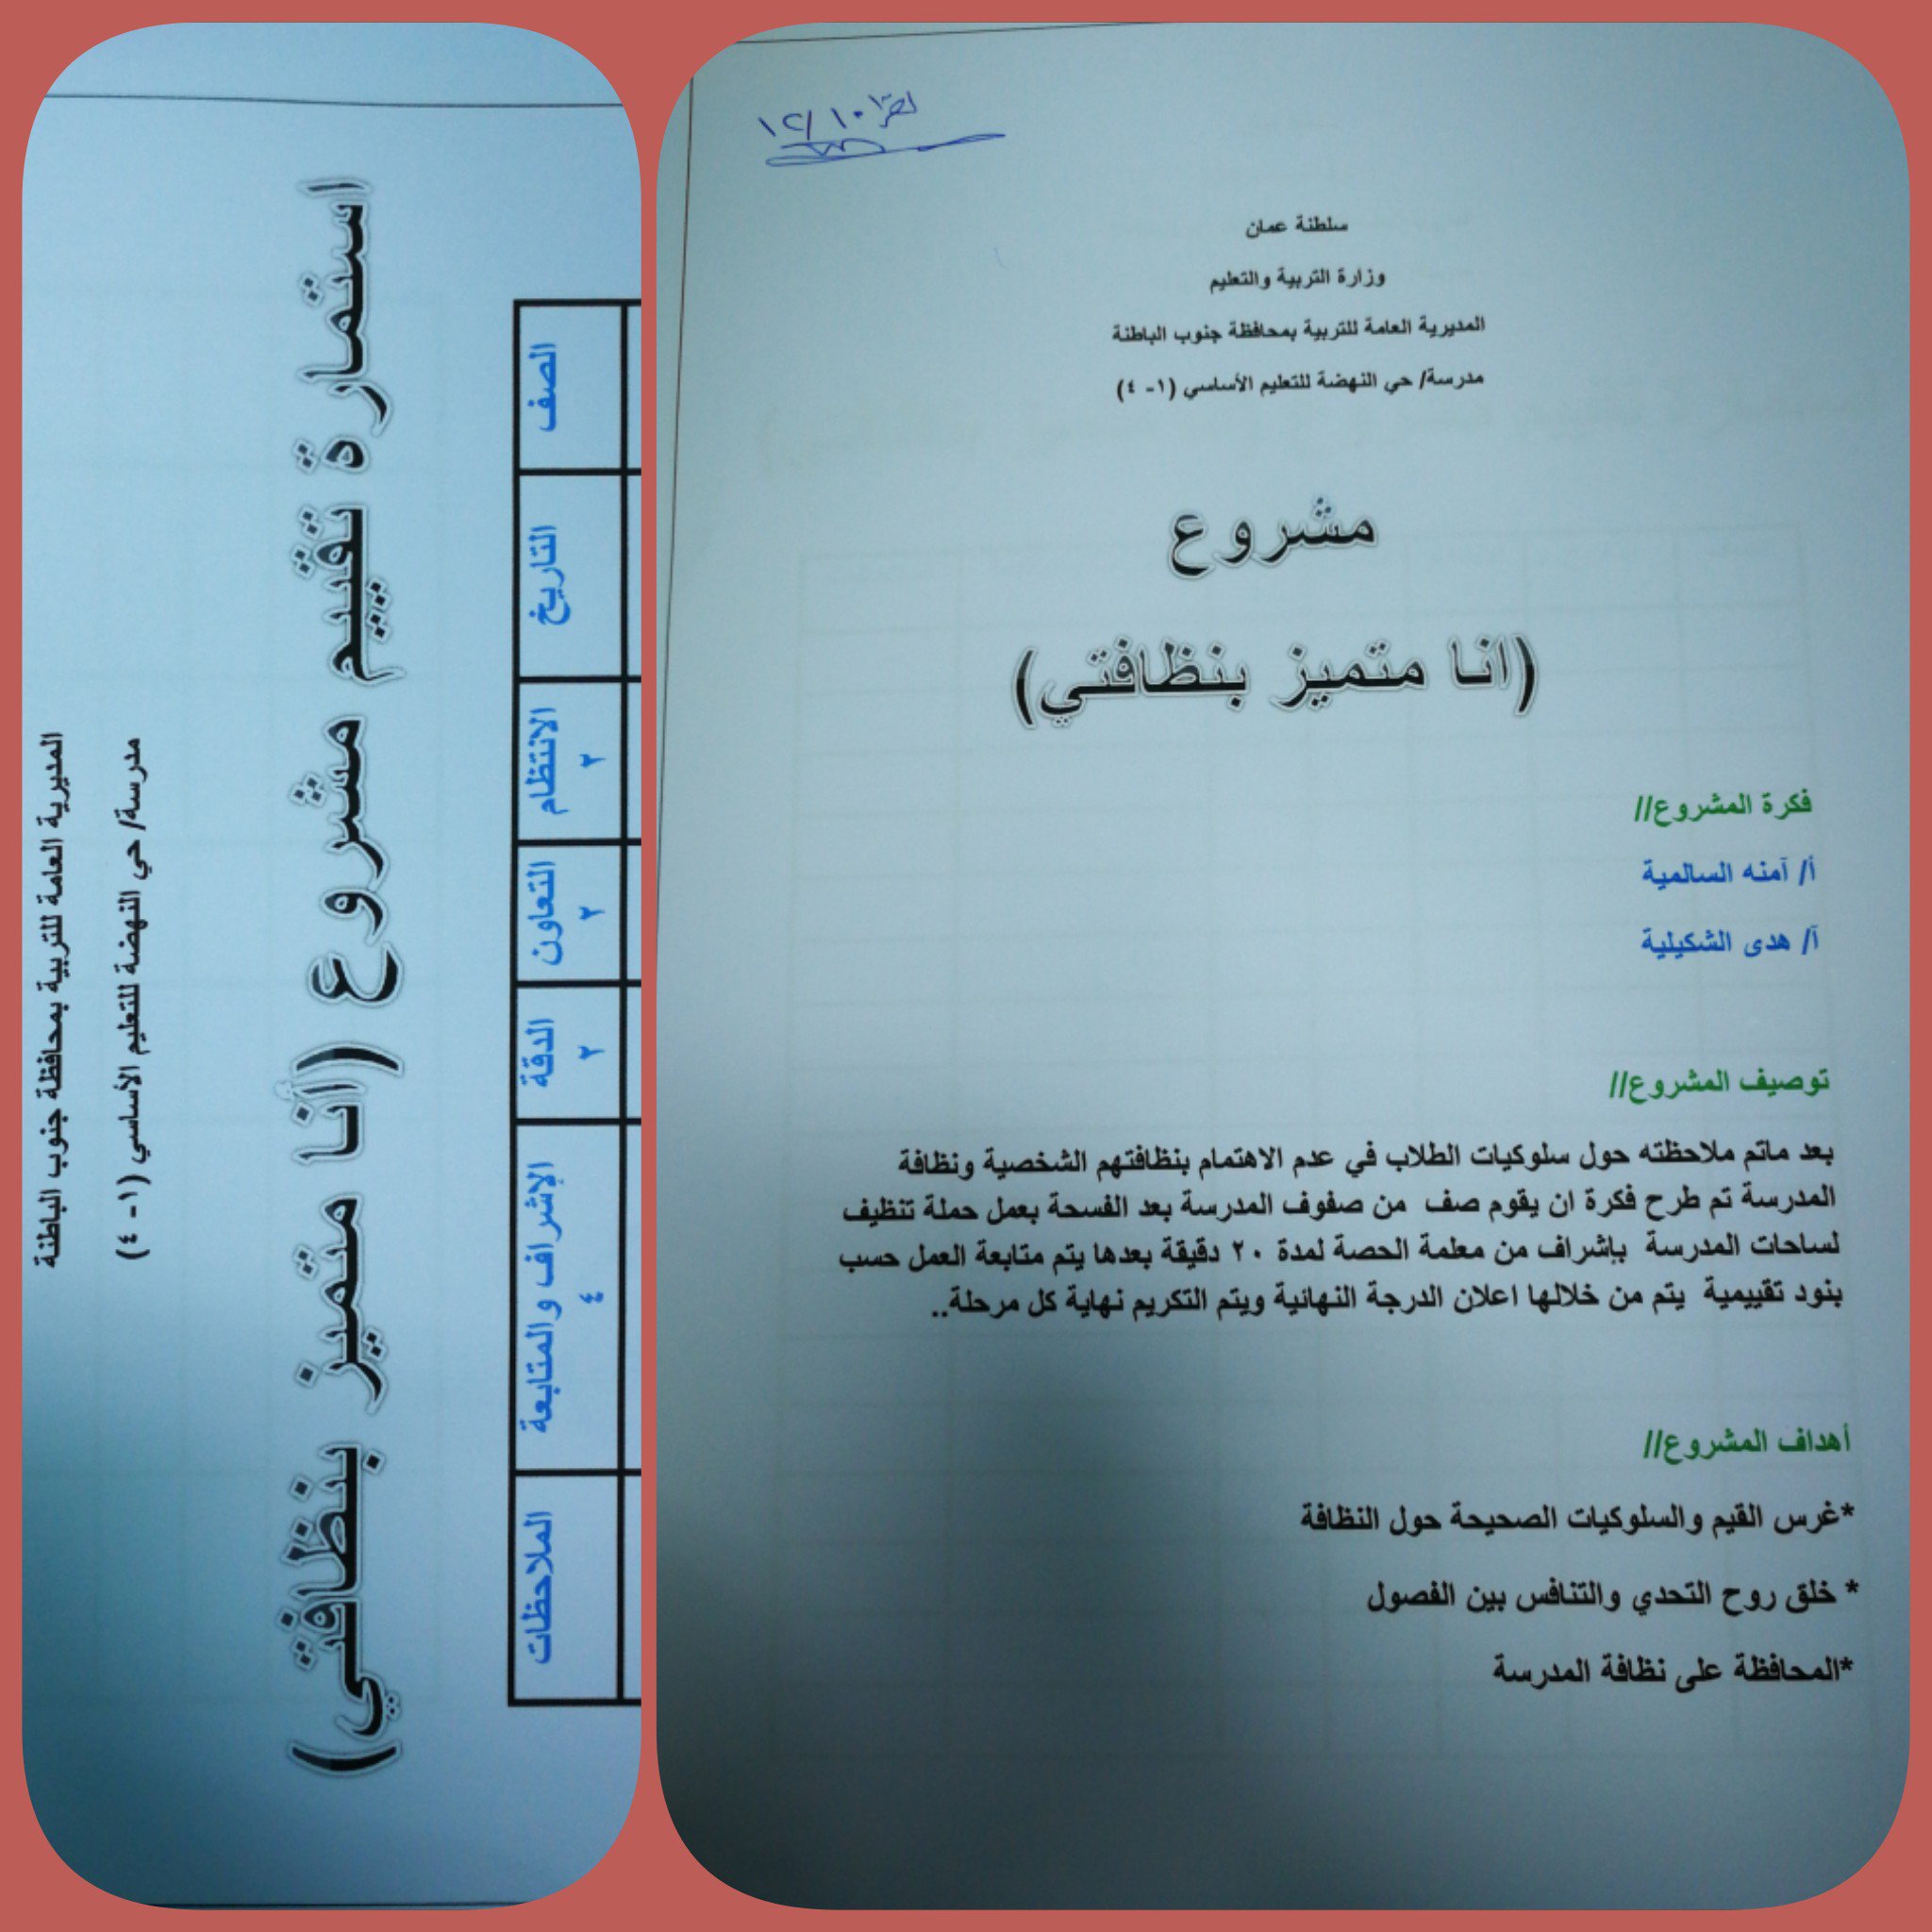 سلطنة عمان
وزارة التربية والتعليم
المديرية العامة للتربية بمحافظة جنوب الباطنة
مدرسة/ حي النهضة للتعليم الأساسي (١- ٤)
مشروع
(انا متميز بنظافتي)
فكرة المشروع//
أ/ آمنه السالمية
آ/ هدى الشكيلية
توصيف المشروع//
بعد ماتم ملاحظته حول سلوكيات الطلاب في عدم الاهتمام بنظافتهم الشخصية ونظافة
المدرسة تم طرح فكرة ان يقوم صف من صفوف المدرسة بعد الفسحة بعمل حملة تنظيف
لساحات المدرسة بإشراف من معلمة الحصة لمدة ٢٠ دقيقة بعدها يتم متابعة العمل حسب
بنود تقييمية يتم من خلالها اعلان الدرجة النهائية ويتم التكريم نهاية كل مرحلة..
أهداف المشروع//
*غرس القيم والسلوكيات الصحيحة حول النظافة
* خلق روح التحدي والتنافس بين الفصول
*المحافظة على نظافة المدرسة
المديرية العامة للتربية بمحافظة جنوب الباطنة
مدرسة/ حي النهضة للتعليم الأساسي (١- ٤)
استمارة تقييم مشروع (أنا متميز بنظافتي)
الصف التاريخ الانتظام التعاون الدقة الإشراف والمتابعة الملاحظات
٢ ٢ ٢ ٤